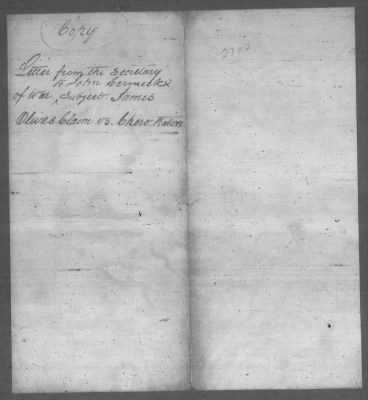 Copy
Letter from the Secretary
to John
of War, Subject James
Claim vs. Chero. Nation